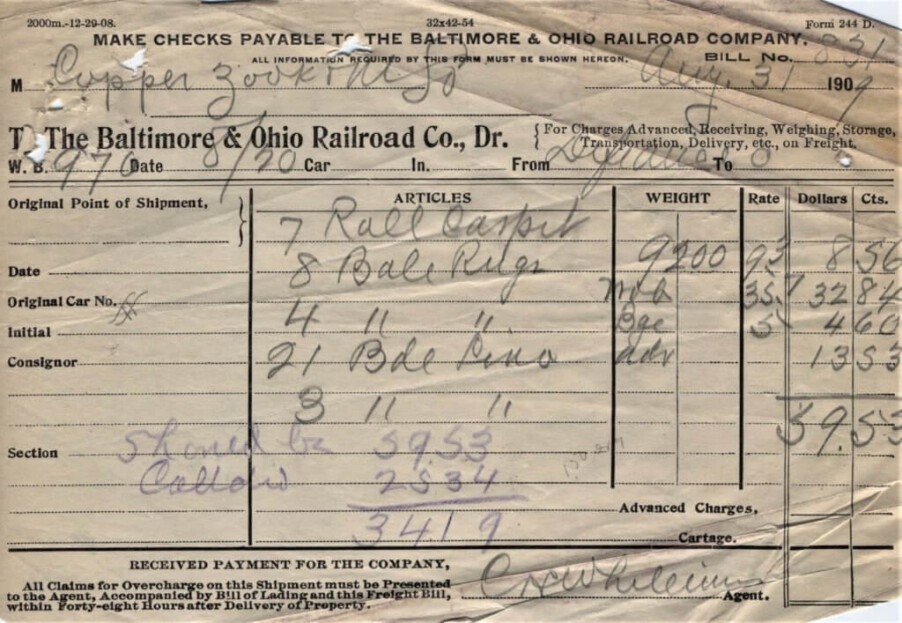 2000m.-12-29-08. 32x42-54 Form 244 D.
MAKE CHECKS PAYABLE TO THE BALTIMORE & OHIO RAILROAD COMPANY.
ALL INFORMATION REQUIRED BY THIS FORM MUST BE SHOWN HEREON. BILL No. 831
M Copper Aug. 31 1909
To The Baltimore & Ohio Railroad Co., Dr. For Charges Advanced, Receiving, Weighing, Storage, Transportation, Delivery, etc., on Freight.
W. B. 976 Date 8/20 Car In. From To
Original Point of Shipment, ARTICLES WEIGHT Rate Dollars Cts.
7 Roll Carpit
8 Bale Rugs 9200 93 8 56
Date
Original Car No. 35 32 84
Initial 4 " " Bge 5 4 60
Consignor 21 Bdl adv 13 53
3 " "
59.53
Section Should be 59 53
25 34
3419
Advanced Charges,
Cartage.
RECEIVED PAYMENT FOR THE COMPANY,
All Claims for Overcharge on this Shipment must be Presented
to the Agent, Accompanied by Bill of Lading and this Freight Bill, Agent.
within Forty-eight Hours after Delivery of Property.